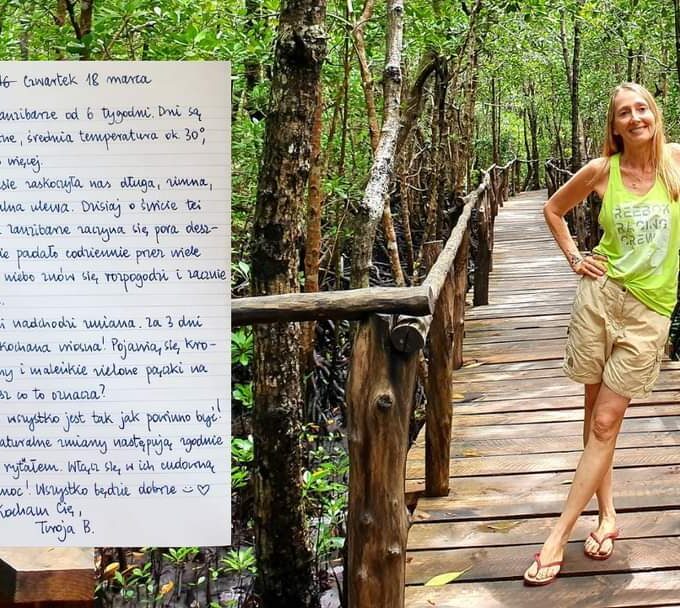 Czwartek 18 marca
anzibarze od 6 tygodni. Dni są
ne, średnia temperatura ok. 30°,
więcej.
sie zaskoczyła nas długa, zimna,
alna ulewa. Dzisiaj o świcie też
zanzibarze zaczyna się pora desz-
ie padało codziennie przez wiele
niebo znów się rozpogodzi i zacznie
i nadchodzi zmiana. Za 3 dni
kochana wiosna! Pojawią się kro-
ny i maleńkie zielone pączki na
sz co to oznacza?
wszystko jest tak jak powinno być!
aturalne zmiany następują zgodnie
rytałem. Włącz się w ich cudowną
moc! Wszystko będzie dobrze ☺ ♡
Kocham Cię,
Twoja B.
REEBOK
RACING
CREW